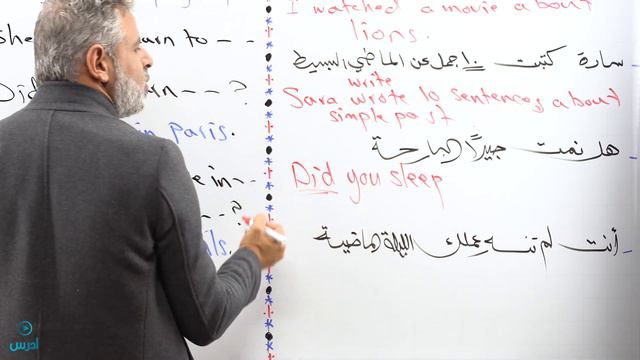 I watched a movie about
lions.
سارة كتبت ١٠ جمل عن الماضي البسيط
write
Sara wrote 10 sentences about
simple past
هل نمت جيدًا البارحة
Did you sleep
أنت لم تنه عملك الليلة الماضية
She
arn to - -
Did
arn - - ?
in paris.
e in - -
- - ?
ils.
ادرس